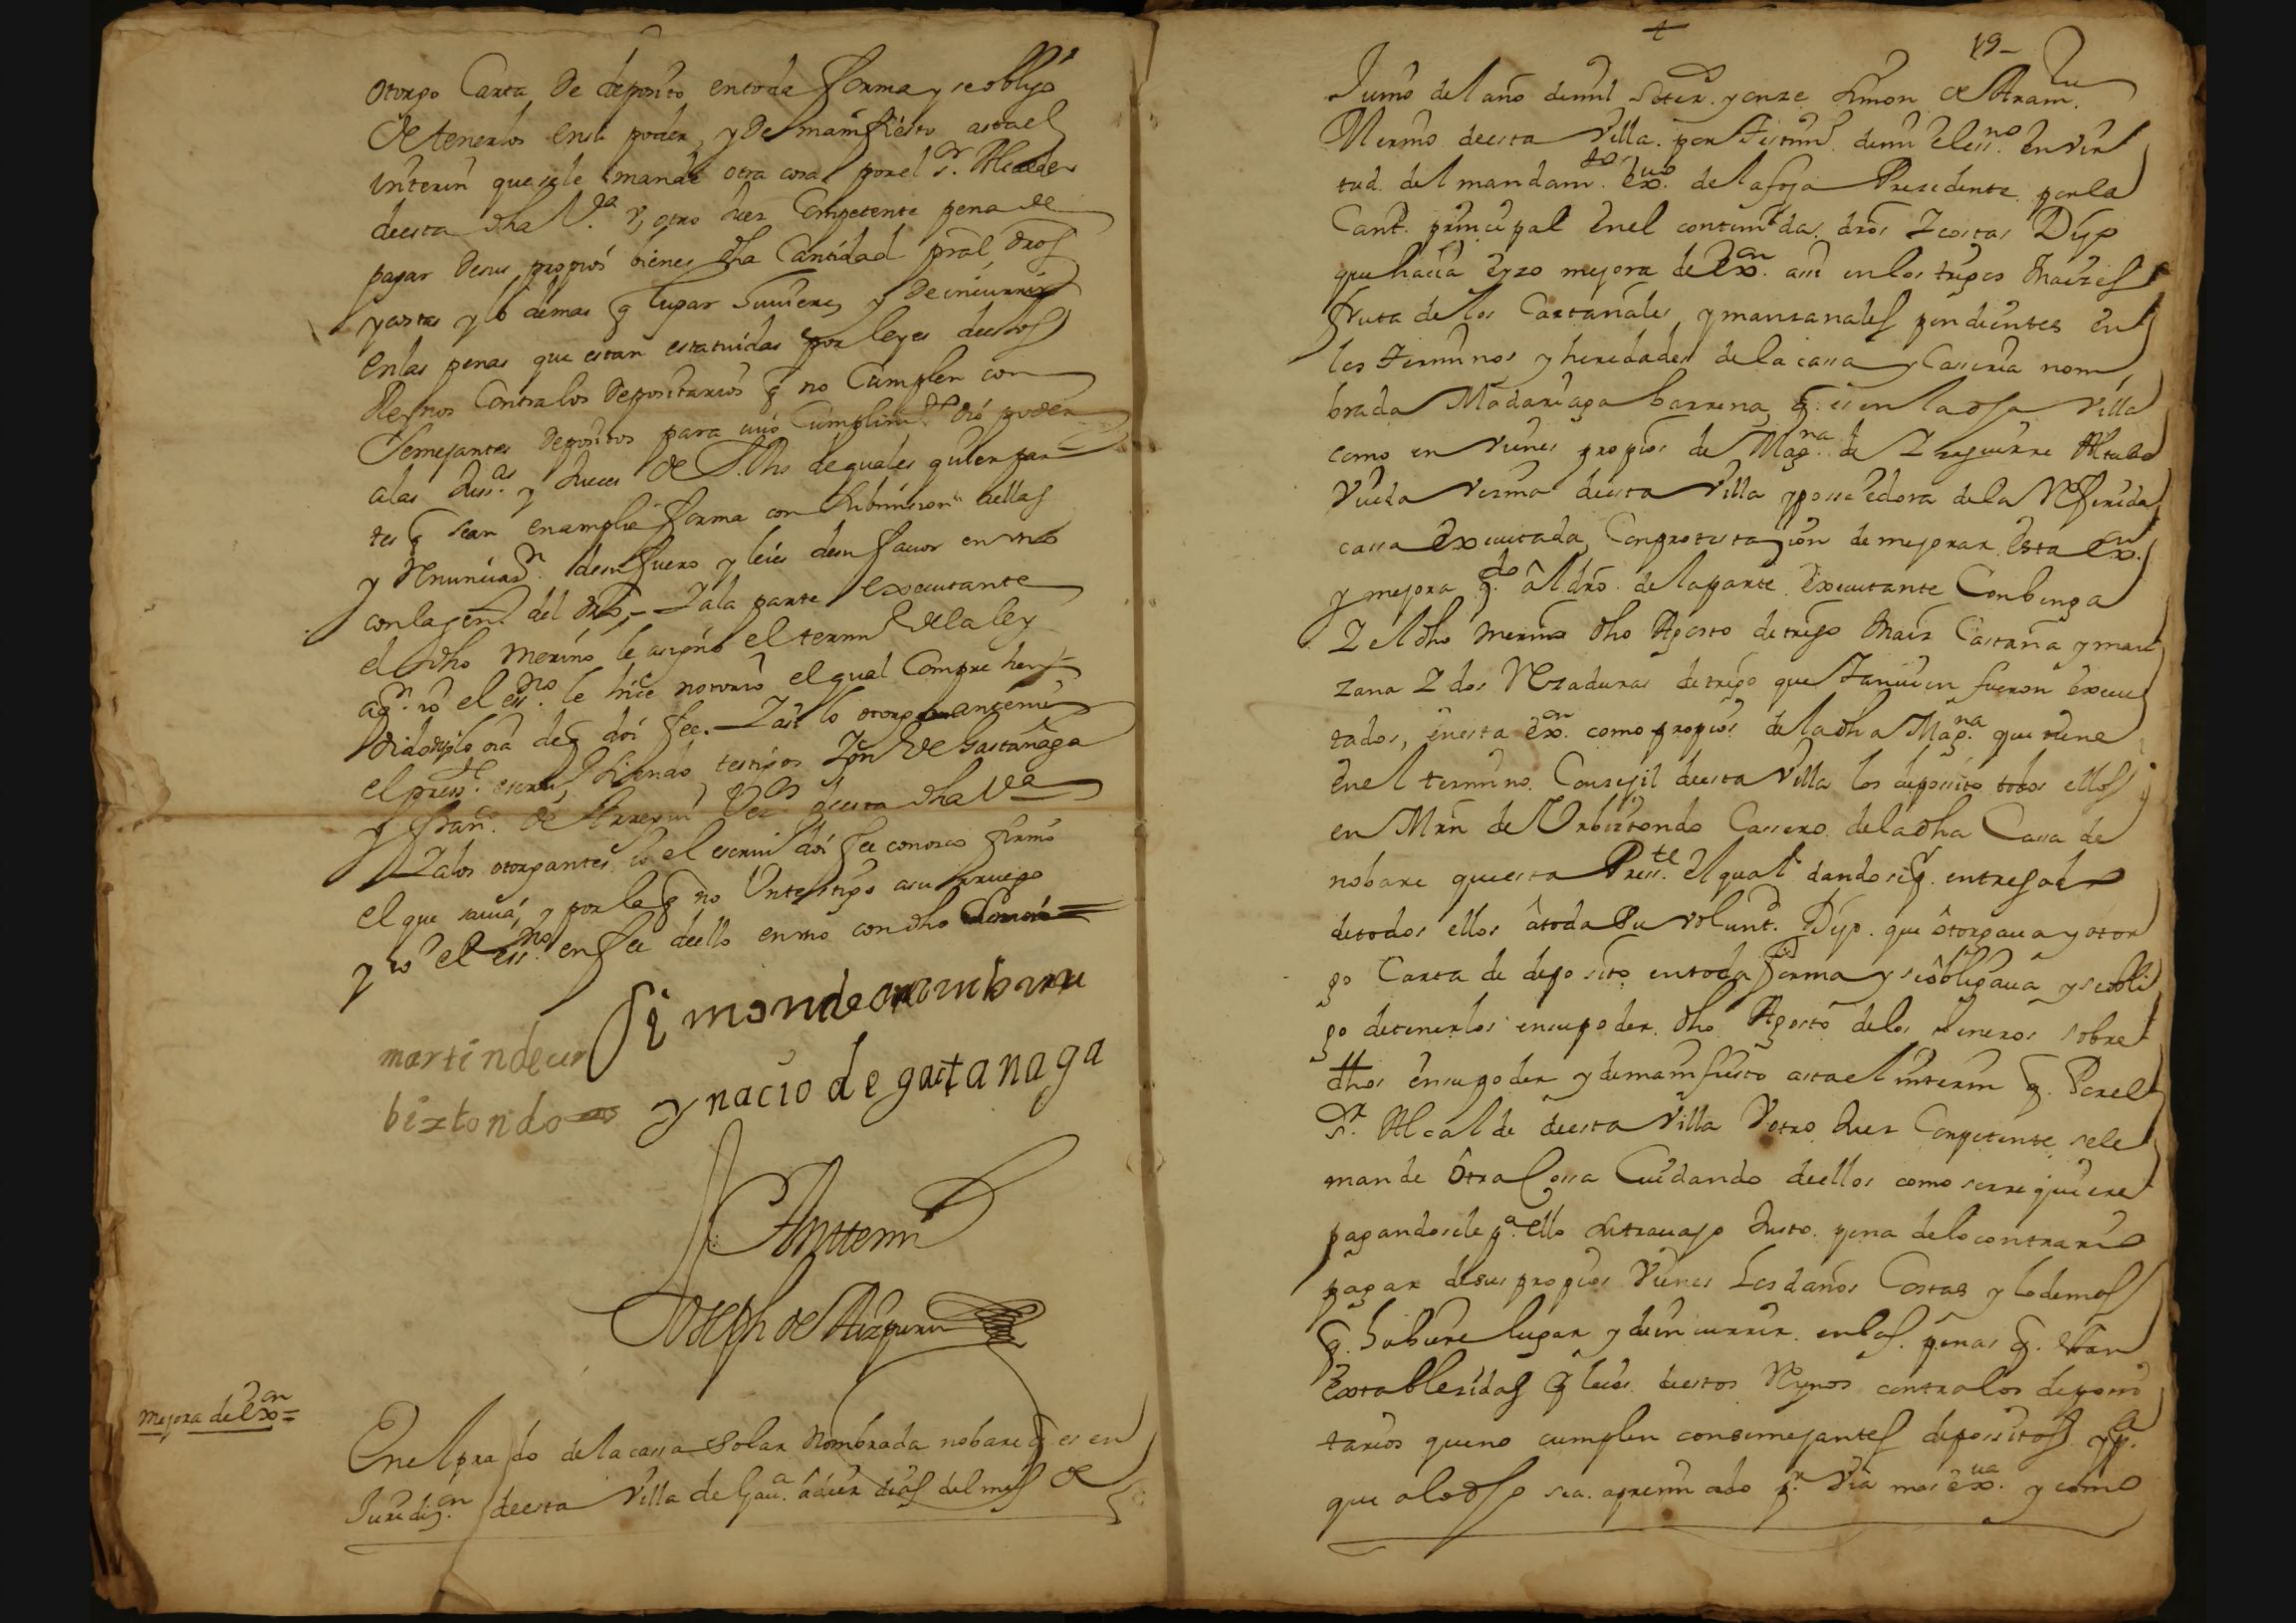 otorgo Carta de deposito en toda forma y se obligó
de tenerlos en su poder, y de manifiesto asta el
interin que se le mande otra cosa por el Sr. Alcalde
de esta dha Va. V otro Juez Competente pena de
pagar de sus propios bienes dha Cantidad pral dros
y costas y lo demas q lugar huuiere, y de incurrir
en las penas que estan estatuidas por leyes destos
Reynos Contra los Depositarios q no Cumplen con
Semejantes depositos para cuio Cumplimto. dió poder
a las Juss.as y Jueces de S. Mg. de quales quier par=
tes q sean en amplia forma con submision a ellas
y Renunciaon. de su fuero y leies de su fauor en uno
con la gen.l del dro,= I a la parte executante
el dho Merino le asignó el termino de la ley
yo el essno. le hice notorio el qual
de q doi fee. I asi lo otorgaron ante mi
el press.te escriu.o siendo testigos Ign.o de Gastañaga
y fran.co de Arregui Vez.os de esta dha Va
I a los otorgantes io el escriu.o doi fee conosco firmó
el que sauia, y por el q no Un testigo a su ruego
y io el essno. en fee de ello en uno con dho Merino=
Simon de aramburu
martin de ur
biztondo
ynacio de gastanaga
Antte mi
Joseph de Aizpuru
Mejora de Exon=
En el prado de la cassa Solar Nombrada nobare q es en
Juridion. de esta Villa de a diez dias del mes de
19
Junio del año de mil Setez.os y onze Simon de Aram.bu
Merino de esta Villa. por testim.o de mi el essno. en vir
tud del mandam.to exuo. de la foja Presedente por la
Cant.d principal en el contenida. dros I costas Dijo
que hacia y izo mejora de Exon. assi en los trigos Maizes
fruta de los Castañales, y manzanales pendientes en
los terminos y heredades de la cassa y Casseria nom
brada Madariaga barrena, q. es en la dha Villa
como en vienes propios de Mag.na de Izaguirre Altube
Viuda vezina de esta Villa y posseedora de la Referida
cassa Executada, Con protestazion de mejorar Esta Exon.
y mejora q.do al dro. de la parte Executante Conbenga
I el dho Merino dho Agosto de trigo Maiz Castaña y man
zana I dos Rozaduras de trigo que tanuien fueron execu
tados, en esta Exon. como propios de la dha Mag.na que tiene
en el termino Consegil de esta Villa los deposito todos ellos
en Mrn de Vrbiztondo Cassero de la dha Cassa de
nobare que esta Press.te el qual dandose q. entregado
de todos ellos a toda Su volunt.d Dijo. que otorgaua y otor
go Carta de deposito en toda forma y se obligaua y se obli
go de tenerlos en su poder dho Agosto de los Jeneros sobre
dhos en su poder y de manifiesto asta el interin q. Por el
Sr. Alcalde de esta Villa V otro Juez Conpetente se le
mande otra Cossa Cuidando de ellos como se requiere
pagandosele pa. ello su trauajo Justo. pena de lo contrario
pagar de sus propios Vienes Los daños Costas y lo demas
q. hubiere lugar y de incurrir en las penas q. estan
Establesidas p leies destos Reynos contra los deposi
tarios que no cumplen con semejantes depositos y pa.
que a lo dho sea apremiado pr. Via mas exua. y como